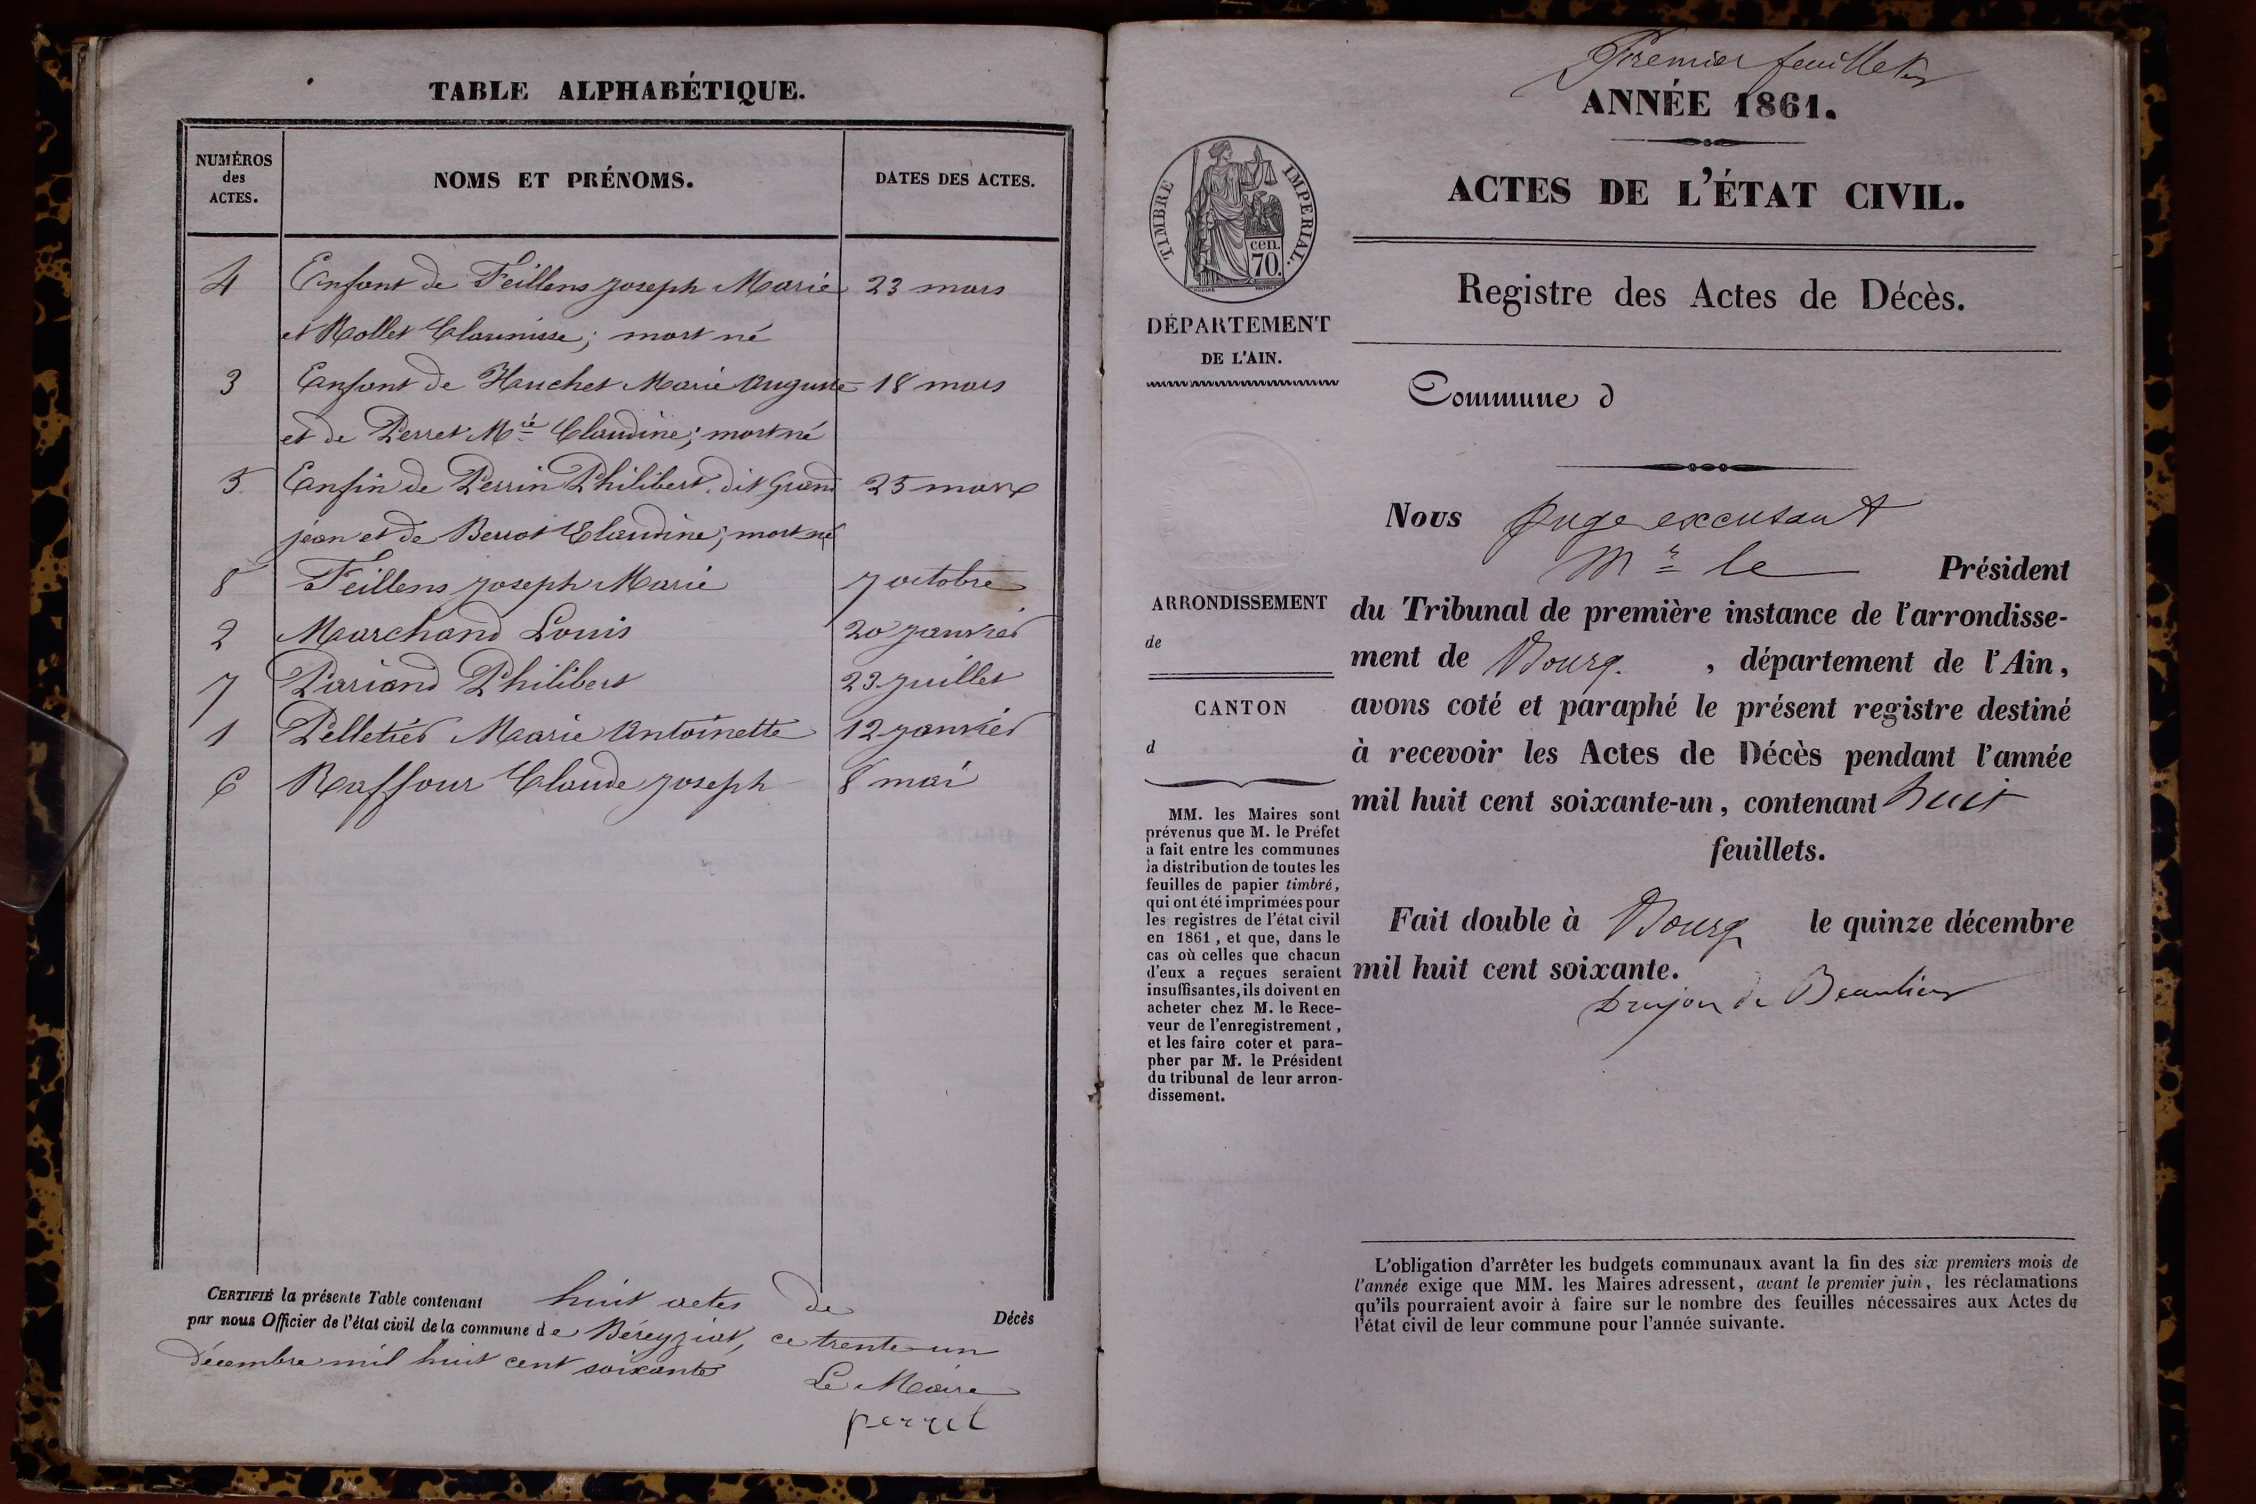 TABLE ALPHABÉTIQUE.
NUMÉROS
des
ACTES.
NOMS ET PRÉNOMS.
DATES DES ACTES.
4 Enfant de Feillens Joseph Marie 23 mars
et Rollet Claunisse; mort né
3 Enfant de Hauchet Marie Auguste 18 mars
et de Perret Mie Claudine; mort né
5 Enfin de Perrin Philibert dit Grand 25 mars
jean et de Berrot Claudine; mort né
8 Feillens Joseph Marie 7 octobre
2 Marchand Louis 20 janvier
7 Pariand Philibert 23 juillet
1 Pelletier Marie Antoinette 12 janvier
6 Raffour Claude Joseph 8 mai
CERTIFIÉ la présente Table contenant huit actes de Décès
par nous Officier de l'état civil de la commune de Béreyziat, ce trente-un
décembre mil huit cent soixante
Le Maire
perret
Premier feuillet
ANNÉE 1861.
ACTES DE L'ÉTAT CIVIL.
Registre des Actes de Décès.
TIMBRE IMPERIAL.
cen.
70.
DÉPARTEMENT
DE L'AIN.
Commune d
ARRONDISSEMENT
de
CANTON
d
MM. les Maires sont
prévenus que M. le Préfet
a fait entre les communes
la distribution de toutes les
feuilles de papier timbré,
qui ont été imprimées pour
les registres de l'état civil
en 1861, et que, dans le
cas où celles que chacun
d'eux a reçues seraient
insuffisantes, ils doivent en
acheter chez M. le Rece-
veur de l'enregistrement,
et les faire coter et para-
pher par M. le Président
du tribunal de leur arron-
dissement.
Nous juge excusant
Mr le Président
du Tribunal de première instance de l'arrondisse-
ment de Bourg. , département de l'Ain,
avons coté et paraphé le présent registre destiné
à recevoir les Actes de Décès pendant l'année
mil huit cent soixante-un, contenant huit
feuillets.
Fait double à Bourg le quinze décembre
mil huit cent soixante.
Drujon de Beaulieu
L'obligation d'arrêter les budgets communaux avant la fin des six premiers mois de
l'année exige que MM. les Maires adressent, avant le premier juin, les réclamations
qu'ils pourraient avoir à faire sur le nombre des feuilles nécessaires aux Actes de
l'état civil de leur commune pour l'année suivante.